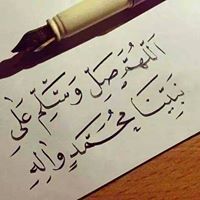 اَللّٰهُمَّ صَلِّ وَسَلِّم عَلىٰ
نَبِيِّنَا مُحَمَّدٍ وآلِهِ